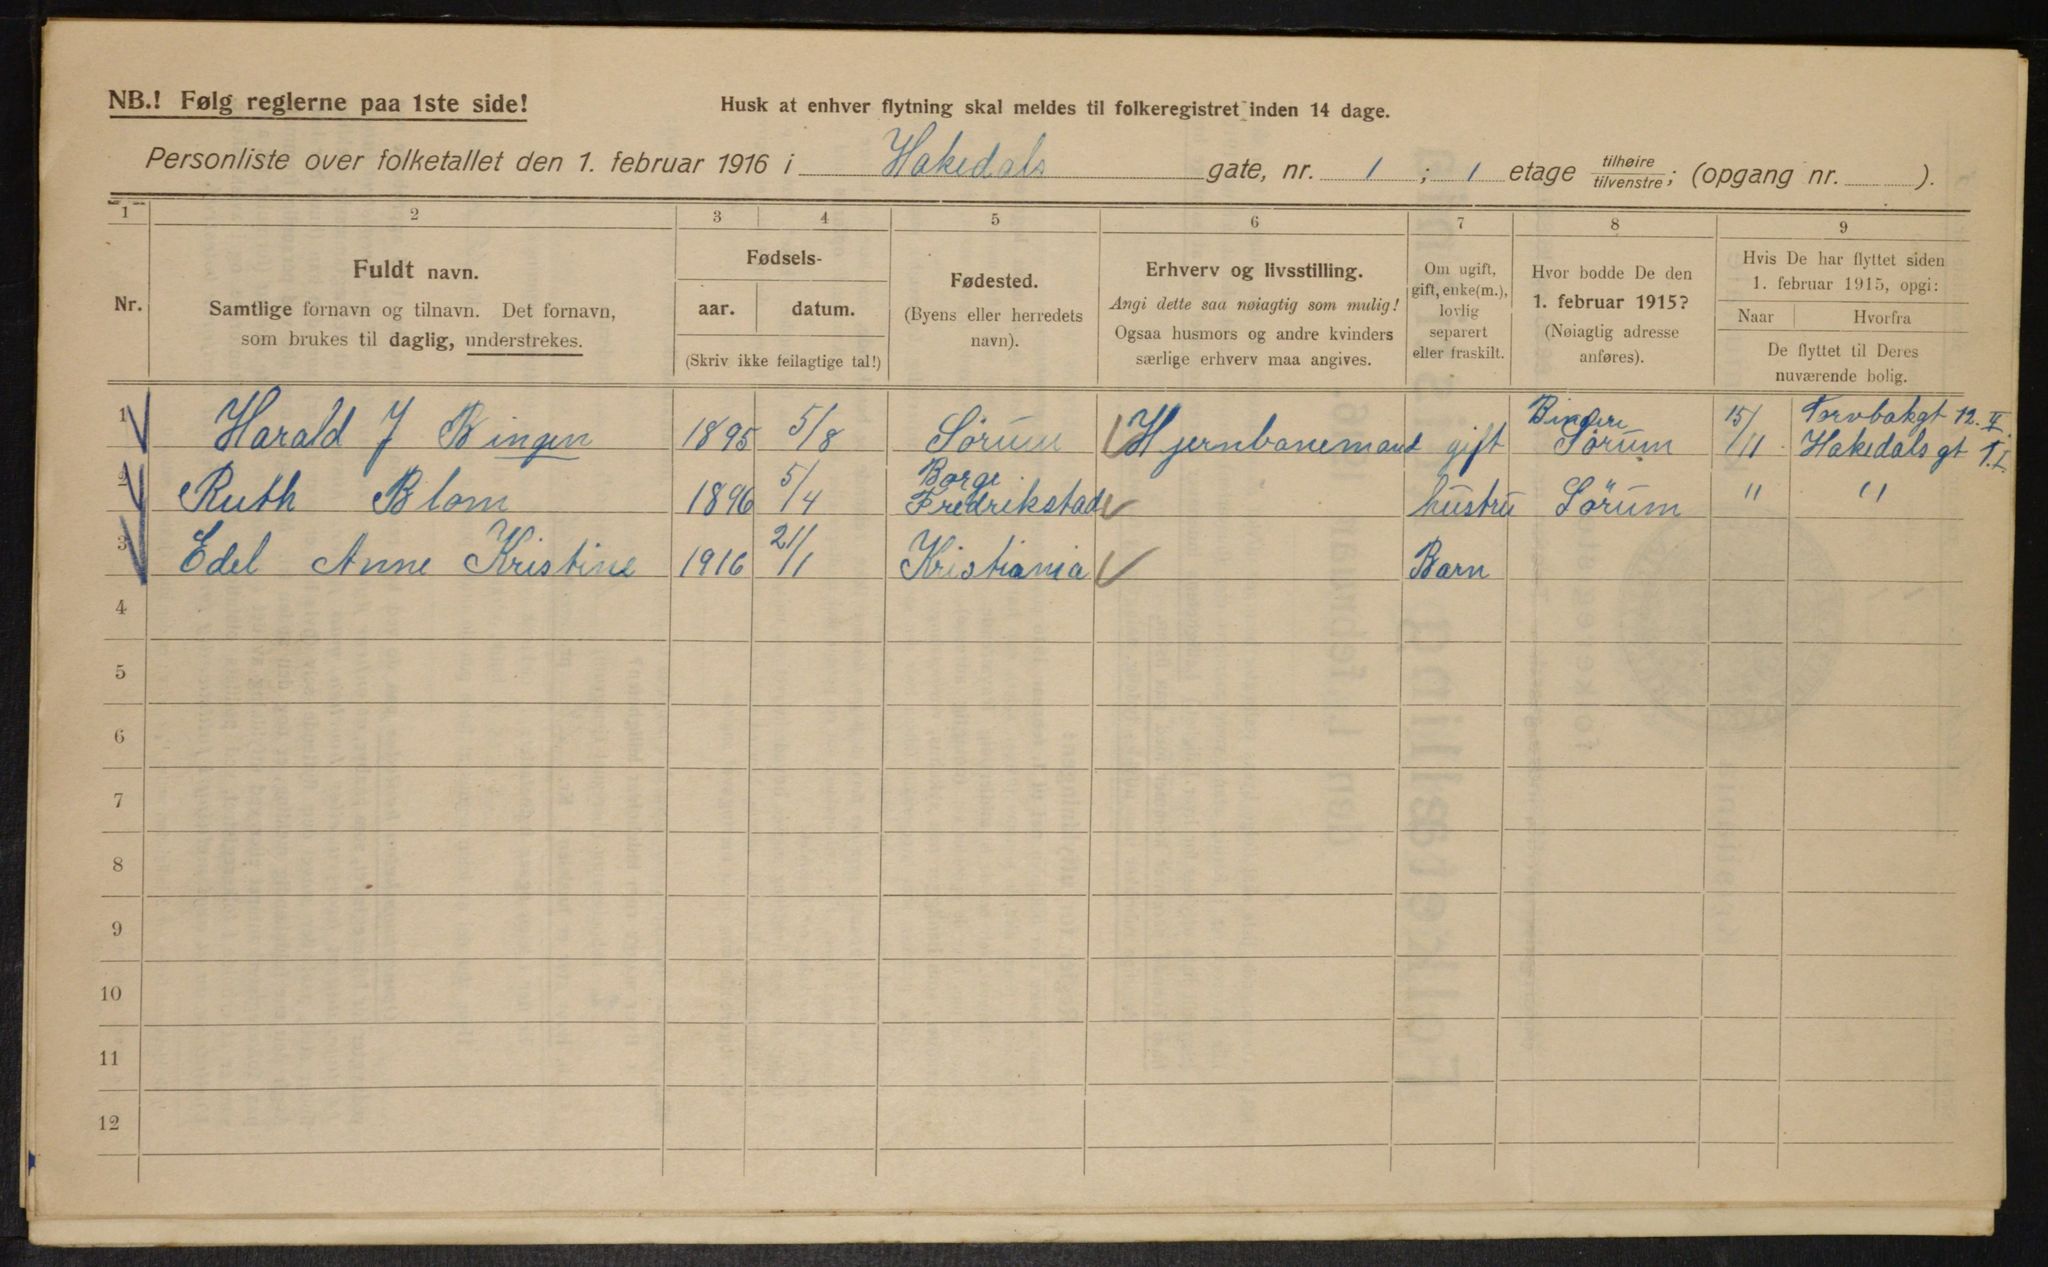 NB.! Følg reglerne paa 1ste side!
Husk at enhver flytning skal meldes til folkeregistret inden 14 dage.
Personliste over folketallet den 1. februar 1916 i Hakedals gate, nr. 1 ; 1 etage tilhøire/tilvenstre; (opgang nr. ).
1 2 3 4 5 6 7 8 9
Nr.
Fuldt navn.
Samtlige fornavn og tilnavn. Det fornavn,
som brukes til daglig, understrekes.
Fødsels-
aar. datum.
(Skriv ikke feilagtige tal!)
Fødested.
(Byens eller herredets
navn).
Erhverv og livsstilling.
Angi dette saa nøiagtig som mulig!
Ogsaa husmors og andre kvinders
særlige erhverv maa angives.
Om ugift,
gift, enke(m.),
lovlig
separert
eller fraskilt.
Hvor bodde De den
1. februar 1915?
(Nøiagtig adresse
anføres).
Hvis De har flyttet siden
1. februar 1915, opgi:
Naar Hvorfra
De flyttet til Deres
nuværende bolig.
1 Harald J Bingen 1895 5/8 Sørum Hjernbanemand gift Bingen Sørum 15/11 Torvbakgt 12. II.
Hakedals gt 1.I.
2 Ruth Blom 1896 5/4 Borge Fredrikstad hustru Sørum " "
3 Edel Anne Kristine 1916 21/1 Kristiania Barn
4
5
6
7
8
9
10
11
12